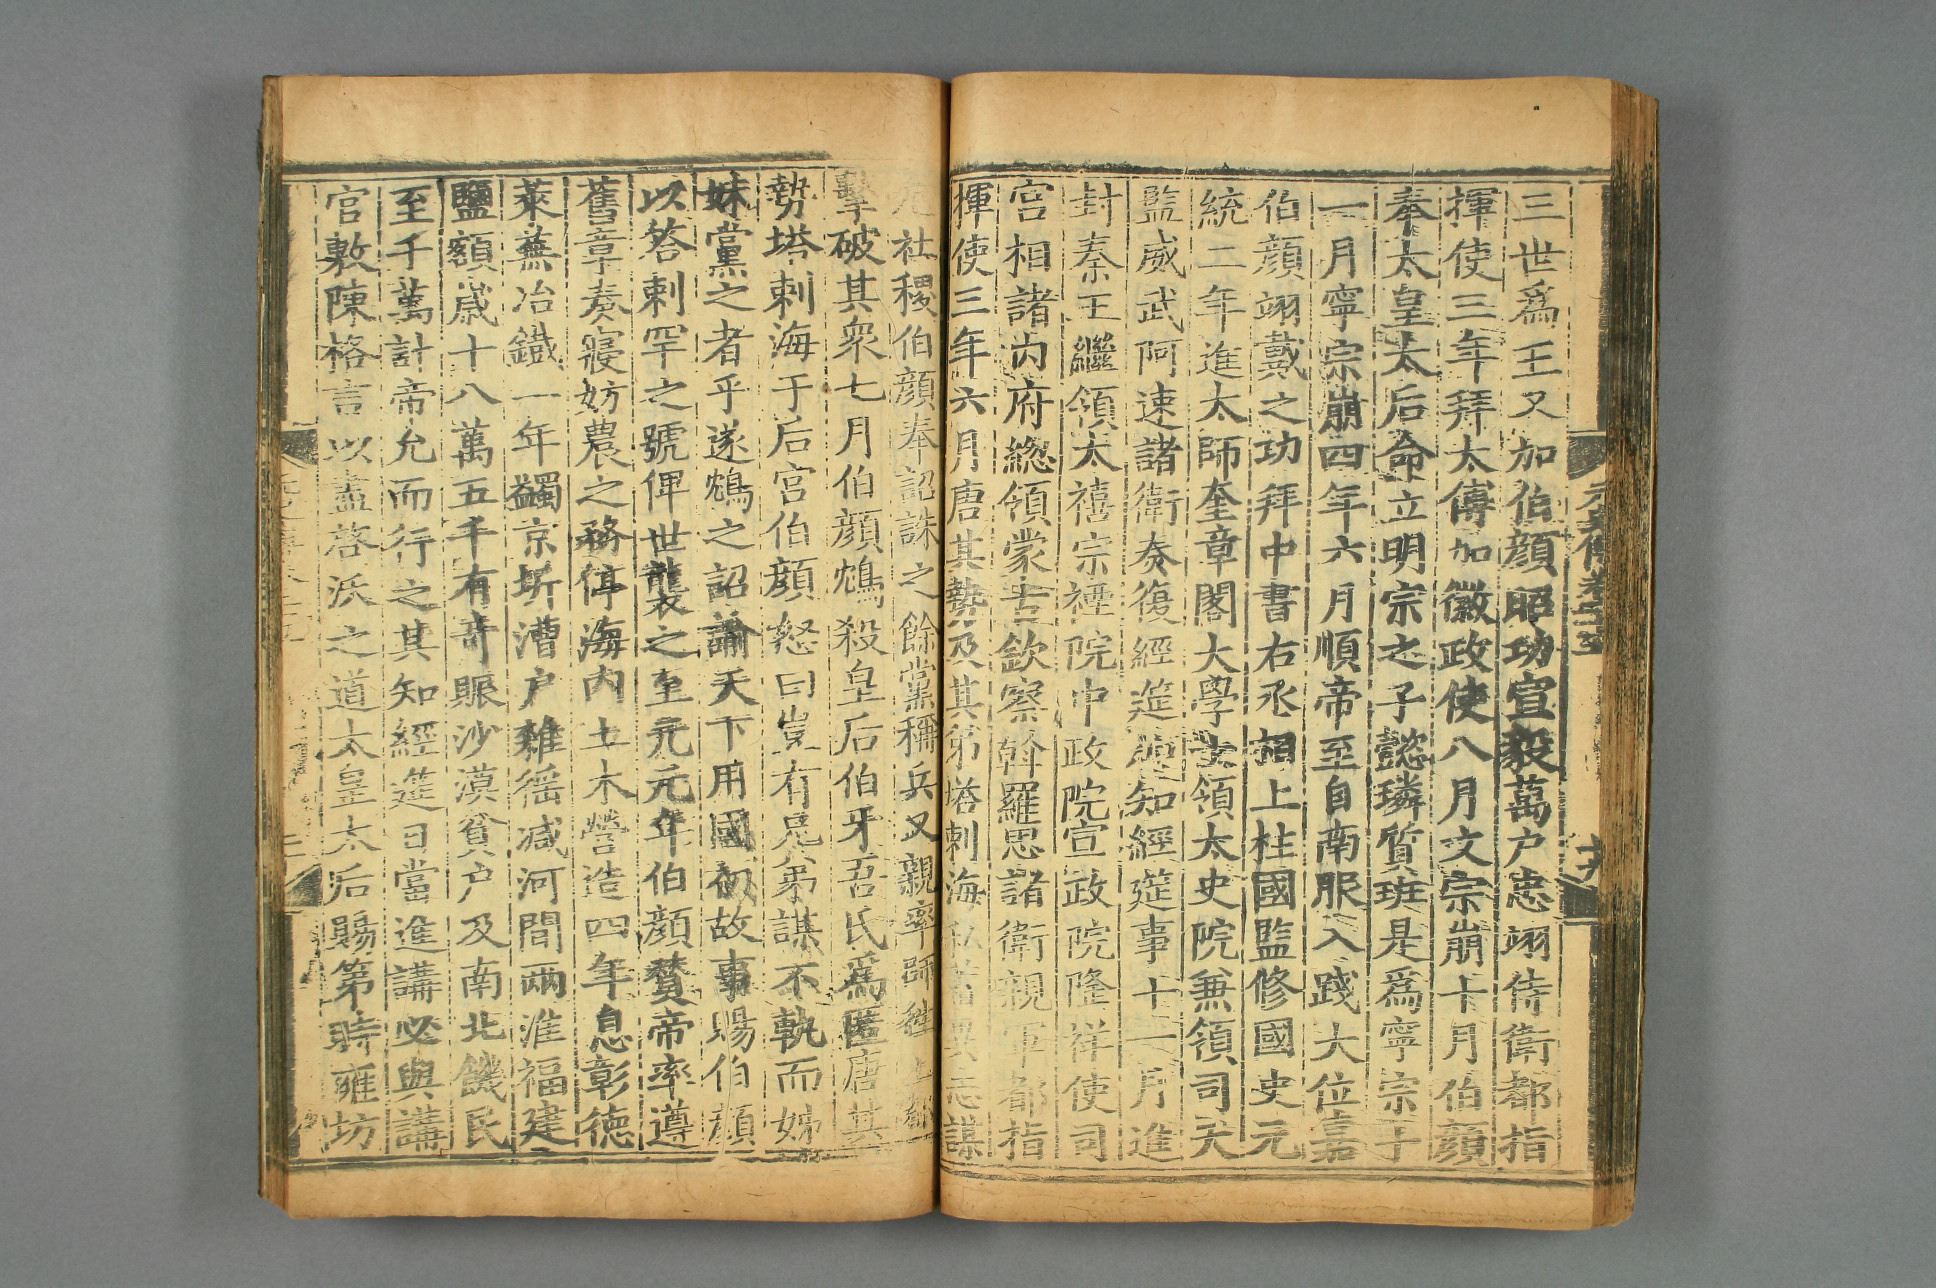 三世爲王又加伯顔昭功宣毅萬户忠翊侍衛都指
揮使三年拜太傅加徽政使八月文宗崩十月伯顔
奉太皇太后命立明宗之子懿璘質班是爲寧宗十
一月寧宗崩四年六月順帝至自南服入踐大位嘉
伯顔翊戴之功拜中書右丞相上柱國監修國史元
統二年進太師奎章閣大學士領太史院兼領司天
監威武阿速諸衛奏復經筵知經筵事十一月進
封秦王繼領太禧宗禋院中政院宣政院隆祥使司
宫相諸内府緫領蒙古欽察斡羅思諸衛親軍都指
揮使三年六月唐其勢及其弟塔剌海私蓄異志謀
社稷伯顔奉詔誅之餘黨稱兵又親率師往上都
擊破其衆七月伯顔鴆殺皇后伯牙吾氏爲匿唐其
勢塔剌海于后宫伯顔怒曰豈有兄弟謀不軌而姊
妹黨之者乎遂鴆之詔諭天下用國初故事賜伯顔
以荅剌罕之號俾世襲之至元元年伯顔贊帝率遵
舊章奏寢妨農之務停海内土木營造四年息彰徳
萊蕪冶鐵一年蠲京圻漕户雜徭减河間兩淮福建
鹽額歳十八萬五千有竒賑沙漠貧户及南北饑民
至千萬計帝允而行之其知經筵日當進講必與講
官敷陳格言以盡啓沃之道太皇太后賜第時雍坊